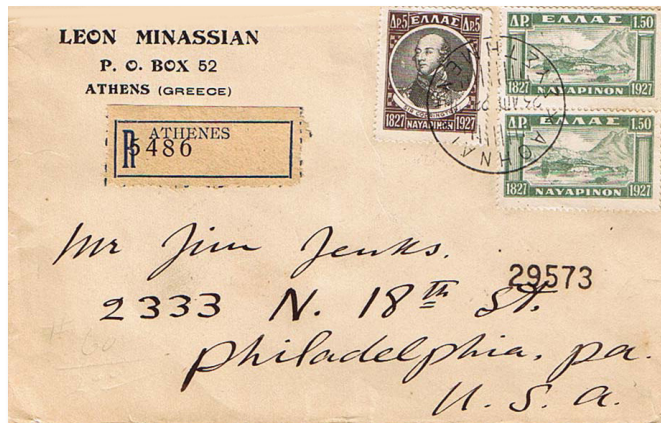 LEON MINASSIAN
P. O. BOX 52
ATHENS (GREECE)
R ATHENES
5486
ΔΡ.5 ΕΛΛΑΣ ΔΡ.5
1827 ΝΑΥΑΡΙΝΟΝ 1927
ΔΡ. ΕΛΛΑΣ 1.50
1827 1927
ΔΡ. ΕΛΛΑΣ 1.50
1827 ΝΑΥΑΡΙΝΟΝ 1927
ΑΘΗΝΑΙ
Mr Jim Jenks.
29573
2333 N. 18th St.
Philadelphia, pa.
U. S. a.